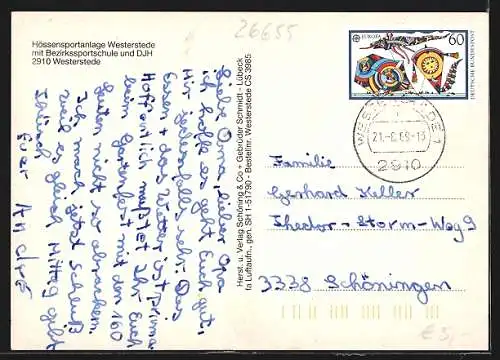 Hössensportanlage Westerstede
mit Bezirkssportschule und DJH
2910 Westerstede
26655
EUROPA
60
DEUTSCHE BUNDESPOST
WESTERSTEDE 1
21.-6.89-13
2910
Liebe Oma, lieber Opa
ich hoffe es geht Euch gut,
Mir jedenfalls sehr. Das
Essen + das Wetter ist prima
Hoffentlich mußtet Ihr Euch
beim Gartenfest mit den 160
Leuten nicht so abrackern.
Ich mach jetzt Schluß
weil es gleich Mittag gibt
Tschüsch
Euer Andreas
Herst. u. Verlag Schöning & Co + Gebrüder Schmidt - Lübeck
fa Luftaufn., gen. SH 1-51790 - Bestellnr. Westerstede CS 3985
Familie
Gerhard Keller
Theodor-Storm-Weg 9
3338 Schöningen
€ 5,-